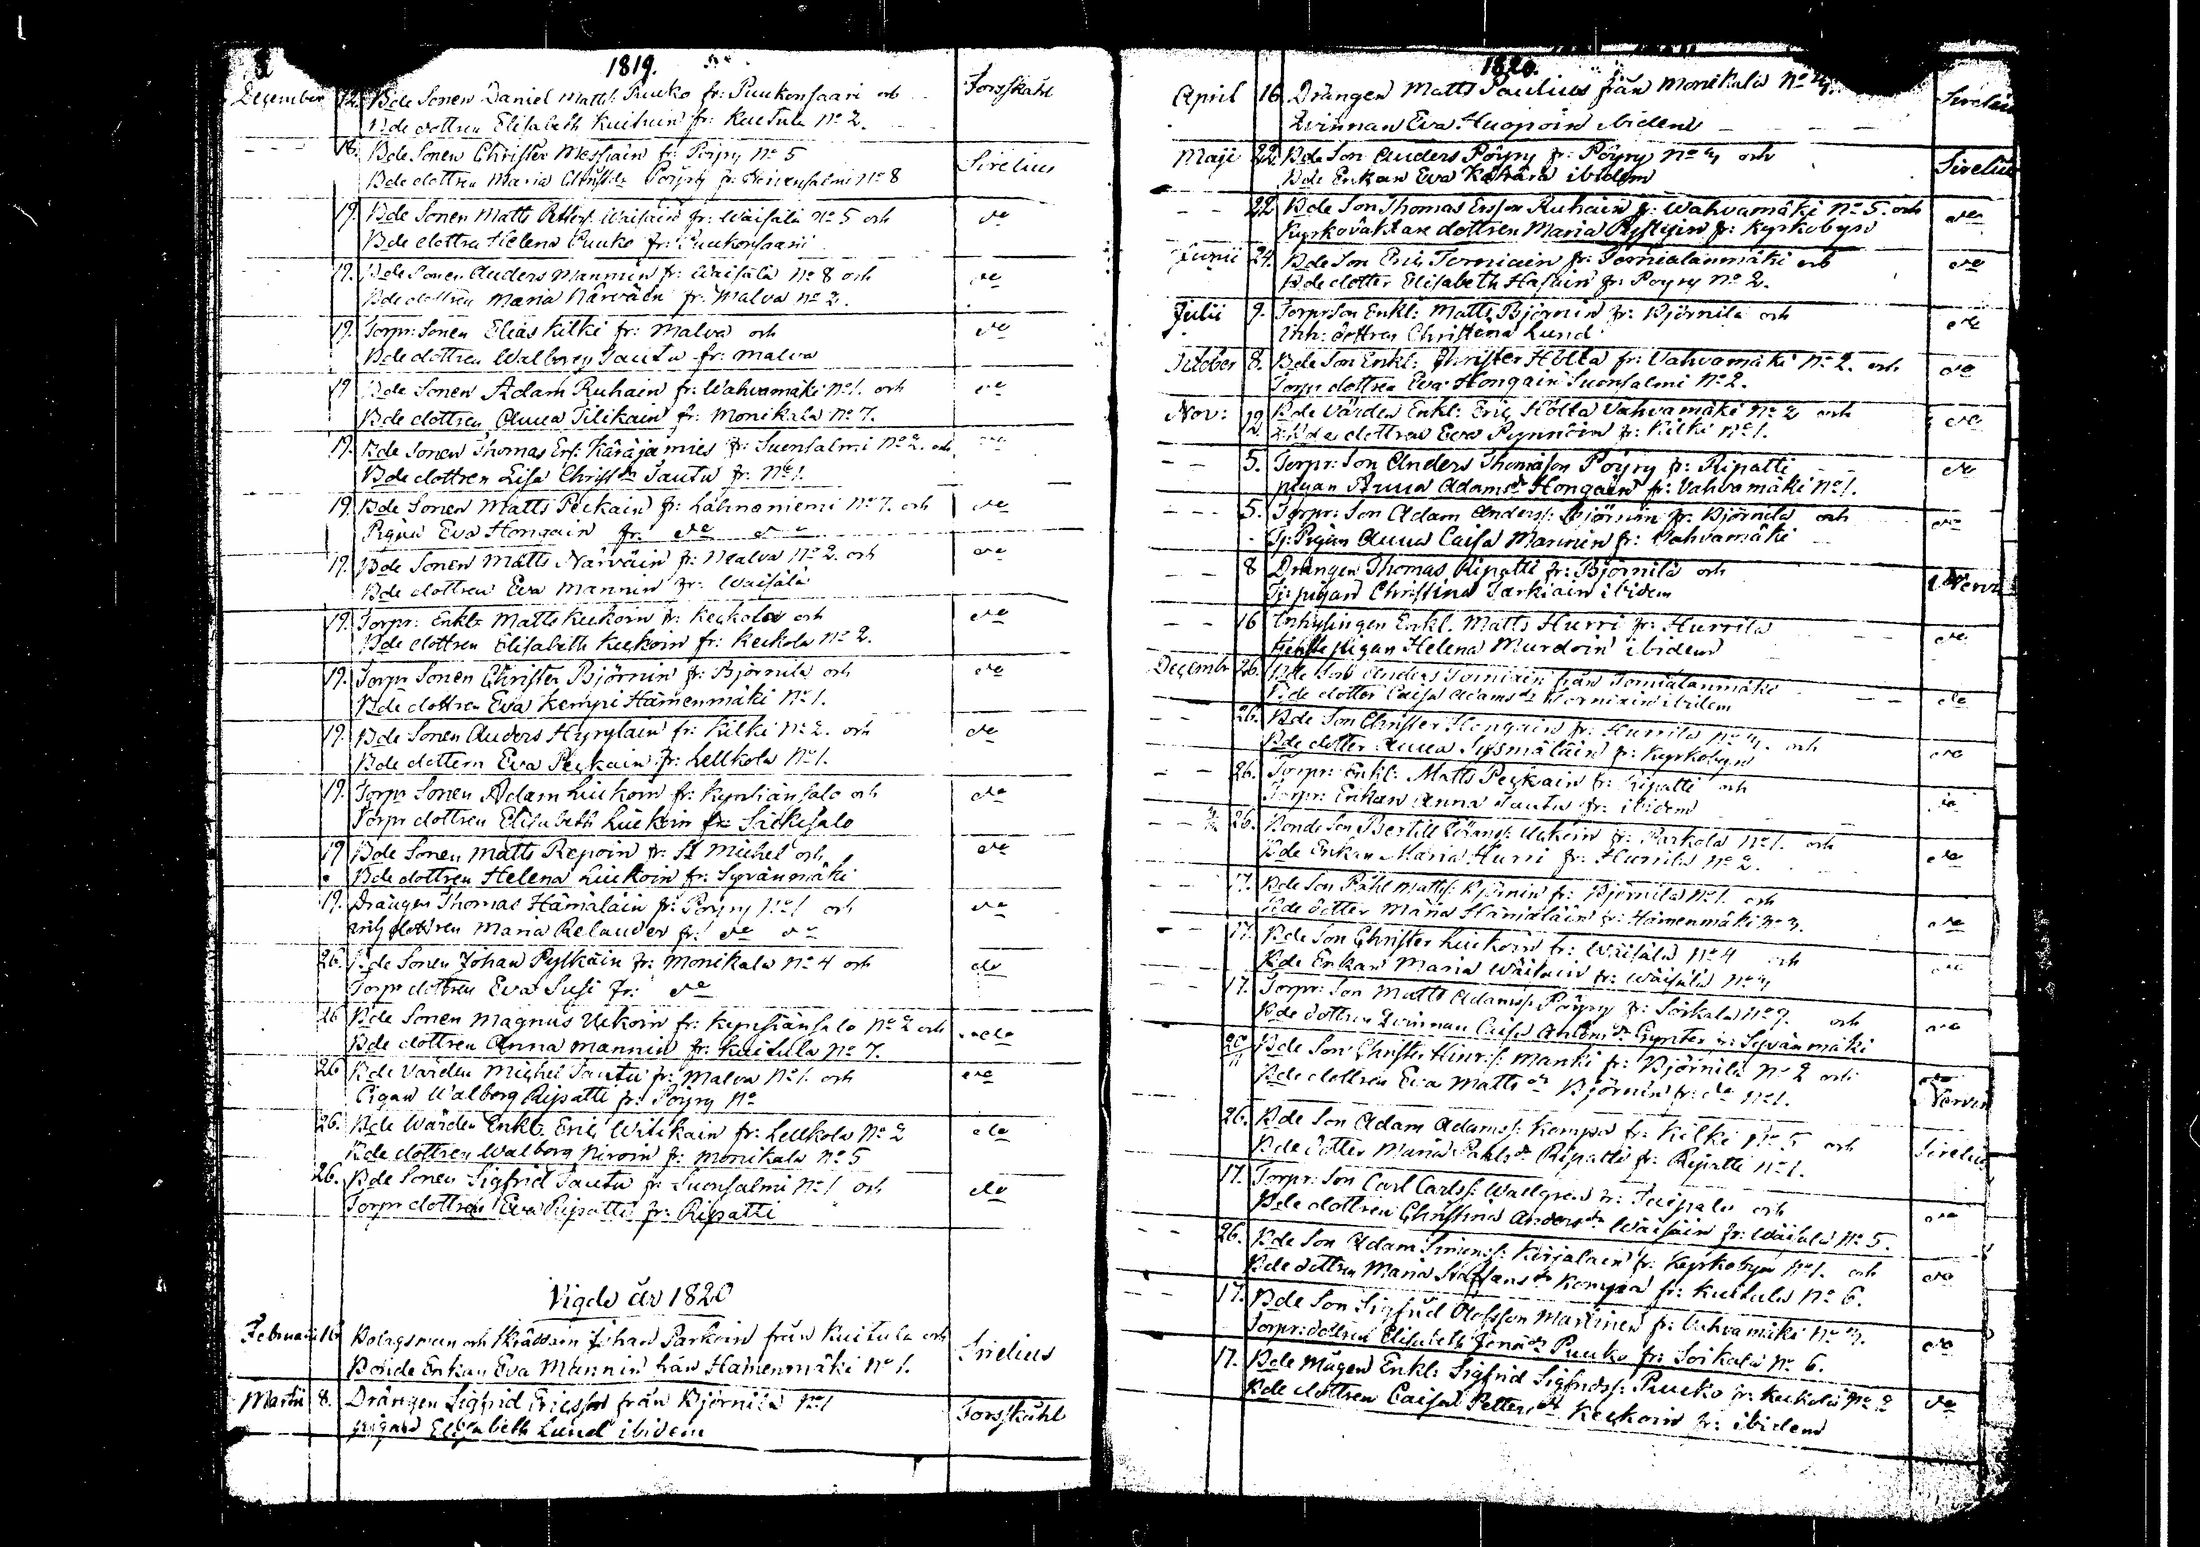 1819.
December 12. Bde Sonen Daniel Matts: Puuko fr: Puukonsaari och Forsskåhl
Bde dottren Elisabeth Kuitunin fr: Kuitula No 2.
18. Bde Sonen Christer Messiain fr: Pöyry No 5 Sirelius
Bde dottren Maria Pöyry fr: No 8
19. Bde Sonen Matts Waisäin fr: Waisälä No 5 och do
Bde dottren Helena Puuko fr: Puukonsaari
19. Bde Sonen Anders Mannin fr: Waisälä No 8 och do
Bde dottren Maria Närväin fr: Malva No 2.
19. Torpr: Sonen Elias Kilki fr: Malva och do
Bde dottren Walborg Tautu fr: Malva
19 Bde Sonen Adam Ruhain fr: Wahvamäki No 1. och do
Bde dottren Anna Tilikain fr: Monikala No 7.
19. Bde Sonen Thomas Ers: Käräjämies fr: Suonsalmi No 2. och do
Bde dottren Lisa Christdr Tautu fr: No 1.
19. Bde Sonen Matts Peckain fr: Lahnaniemi No 7. och do
Pigan Eva Hongain fr: do do
19. Bde Sonen Matts Närväin fr: Malva No 2. och do
Bde dottren Eva Mannin fr: Waisälä
19. Torpr: Enkl: Matts Keckoin fr: Keckola och do
Bde dottren Elisabeth Keckoin fr: Keckola No 2.
19. Torpr Sonen Christer Björnin fr: Björnilä och do
Bde dottren Eva Kempi Hämenmäki No 1.
19. Bde Sonen Anders Hyrylain fr: Kilki No 2. och do
Bde dottern Eva Peckain fr: Lellkola No 1.
19. Torpr Sonen Adam Liukoin fr: Kynsiänsalo och do
Torpr dottren Elisabeth Liukoin fr: Säckisalo
19 Bde Sonen Matts Repoin fr: St Michel och do
Bde dottren Helena Liukoin fr: Syvänmäki
19. Drängen Thomas Hämäläin fr: Pöyry No 1 och do
inh dottren Maria Relander fr: do do
26. Bde Sonen Johan Pylkäin fr: Monikala No 4 och do
Torpr dottren Eva Susi fr: do
26 Bde Sonen Magnus Uckoin fr: Kynsiänsalo No 2 och do
Bde dottren Anna Mannin fr: Kuitula No 7.
26 Bde Värden Michel Tautu fr: Malva No 1. och do
Pigan Walborg Ripatti fr: Pöyry No
26. Bde Wärden Enkl. Eric Wilikain fr: Lellkola No 2 do
Bde dottren Walborg Niroin fr: Monikala No 5
26. Bde Sonen Sigfrid Tautu fr: Suonsalmi No 1 och do
Torpr dottren Eva Ripatti fr: Ripatti
Vigde år 1820
Februarii Bolagsman och Skräddarn Johan Parkoin från Kuitula och Sirelius
Bonde Enkan Eva Mannin från Hämenmäki No 1.
Martii 8. Drängen Sigfrid Ericsson från Björnilä No 1 Forsskåhl
pigan Elisabeth Lund ibidem
1820.
April 16. Drängen Matts Paulius från Monikala No 4. Sirelius
Qvinnan Eva Huopoin ibidem
Maji 22. Bde Son Anders Pöyry fr: Pöyry No 4 och Sirelius
Bde Enkan Eva ibidem
22 Bde Son Thomas Ersson Ruhain fr: Wahvamäki No 5. och do
Kyrkoväktare dottren Maria fr: Kyrkobyn
Junii 24. Bde Son Eric Torniain fr: Torniälänmäki och do
Bde dotter Elisabeth Hasuin fr: Pöyry No 2.
Julii 9. Torpr Son Enkl: Matts Björnin fr: Björnilä och do
Inh: dottren Christena Lund
October 8. Bde Son Enkl: Christer Höltä fr: Vahvamäki No 2. och do
Torpr dottren Eva Hongain Suonsalmi No 2.
Nov: 12 Bde Värden Enkl: Eric Höltä Vahvamäki No 2 och do
Bde dottren Eva Pynnöin fr: Kilki No 1.
5. Torpr: Son Anders Thomasson Pöyry fr: Ripatti do
pigan Anna Adamsdr Hongain fr: Vahvamäki No 1.
5. Torpr: Son Adam Anders: Björnin fr: Björnilä och do
Tj: Pigan Anna Caisa Mannin fr: Vahvamäki
8 Drängen Thomas Ripatti fr: Björnilä och
Tj: pigan Christina Tarkiain ibidem
16 Inhysingen Enkl. Matts Hurri fr: Hurrila do
Tjenste pigan Helena Murdoin ibidem
Decembr 26. Bde Son Anders Torniain från Torniälänmäki do
Bde dotter Caisa Adamsdr Torniain ibidem
26. Bde Son Christer Hongain fr: Hurrila No 4. och do
Bde dotter Anna Sysmäläin fr: Kyrkobyn
26. Torpr: Enkl: Matts Peckain fr: Ripatti och do
Torpr: Enkan Anna Tautu fr: ibidem
26. Bonde Son Bertill Uckoin fr: Parkola No 1. och do
Bde Enkan Maria Hurri fr: Hurrila No 2.
17. Bde Son Påhl Matts: Björnin fr: Björnilä No 1. och do
Bde dotter Maria Hämäläin fr: Hämenmäki No
17. Bde Son Christer Liukoin fr: Wäisälä No 4 och do
Bde Enkan Maria Wäisäin fr: Wäisälä No 4
17. Torpr: Son Matts Adams: Pöyry fr: Soikala No 9. och do
Bde dottren Qvinnan Caisa Gynter fr: Syvänmäki
Bde Son Christer Hinr: Manki fr: Björnilä No 2 och do
Bde dottren Eva Mattsdr Björnin fr: do No 1.
26. Bde Son Adam Adams: Kompa fr: Kilki No 5 och Sirelius
Bde dotter Maria Pahlsdr Ripatti fr: Ripatti No 1.
17. Torpr: Son Carl Carls: Wallgren fr: Taipale och do
Bde dottren Christina Andersdr Wäisäin fr: Wäisälä No 5.
26. Bde Son Adam Simons: Kirjalain fr: Kyrkobyn No 1. och do
Bde dottren Maria Staffansdr Kompa fr: Kuitula No 6.
17. Bde Son Sigfrid Olofsson Martinen fr: Vahvamäki No 4. do
Torpr: dottren Elisabeth Puuko fr: Soikala No 6.
17. Bde Mågen Enkl: Sigfrid Sigfrids: Puuko fr: Keckola No 2 do
Bde dottren Caisa Pettersdr Keckoin fr: ibidem